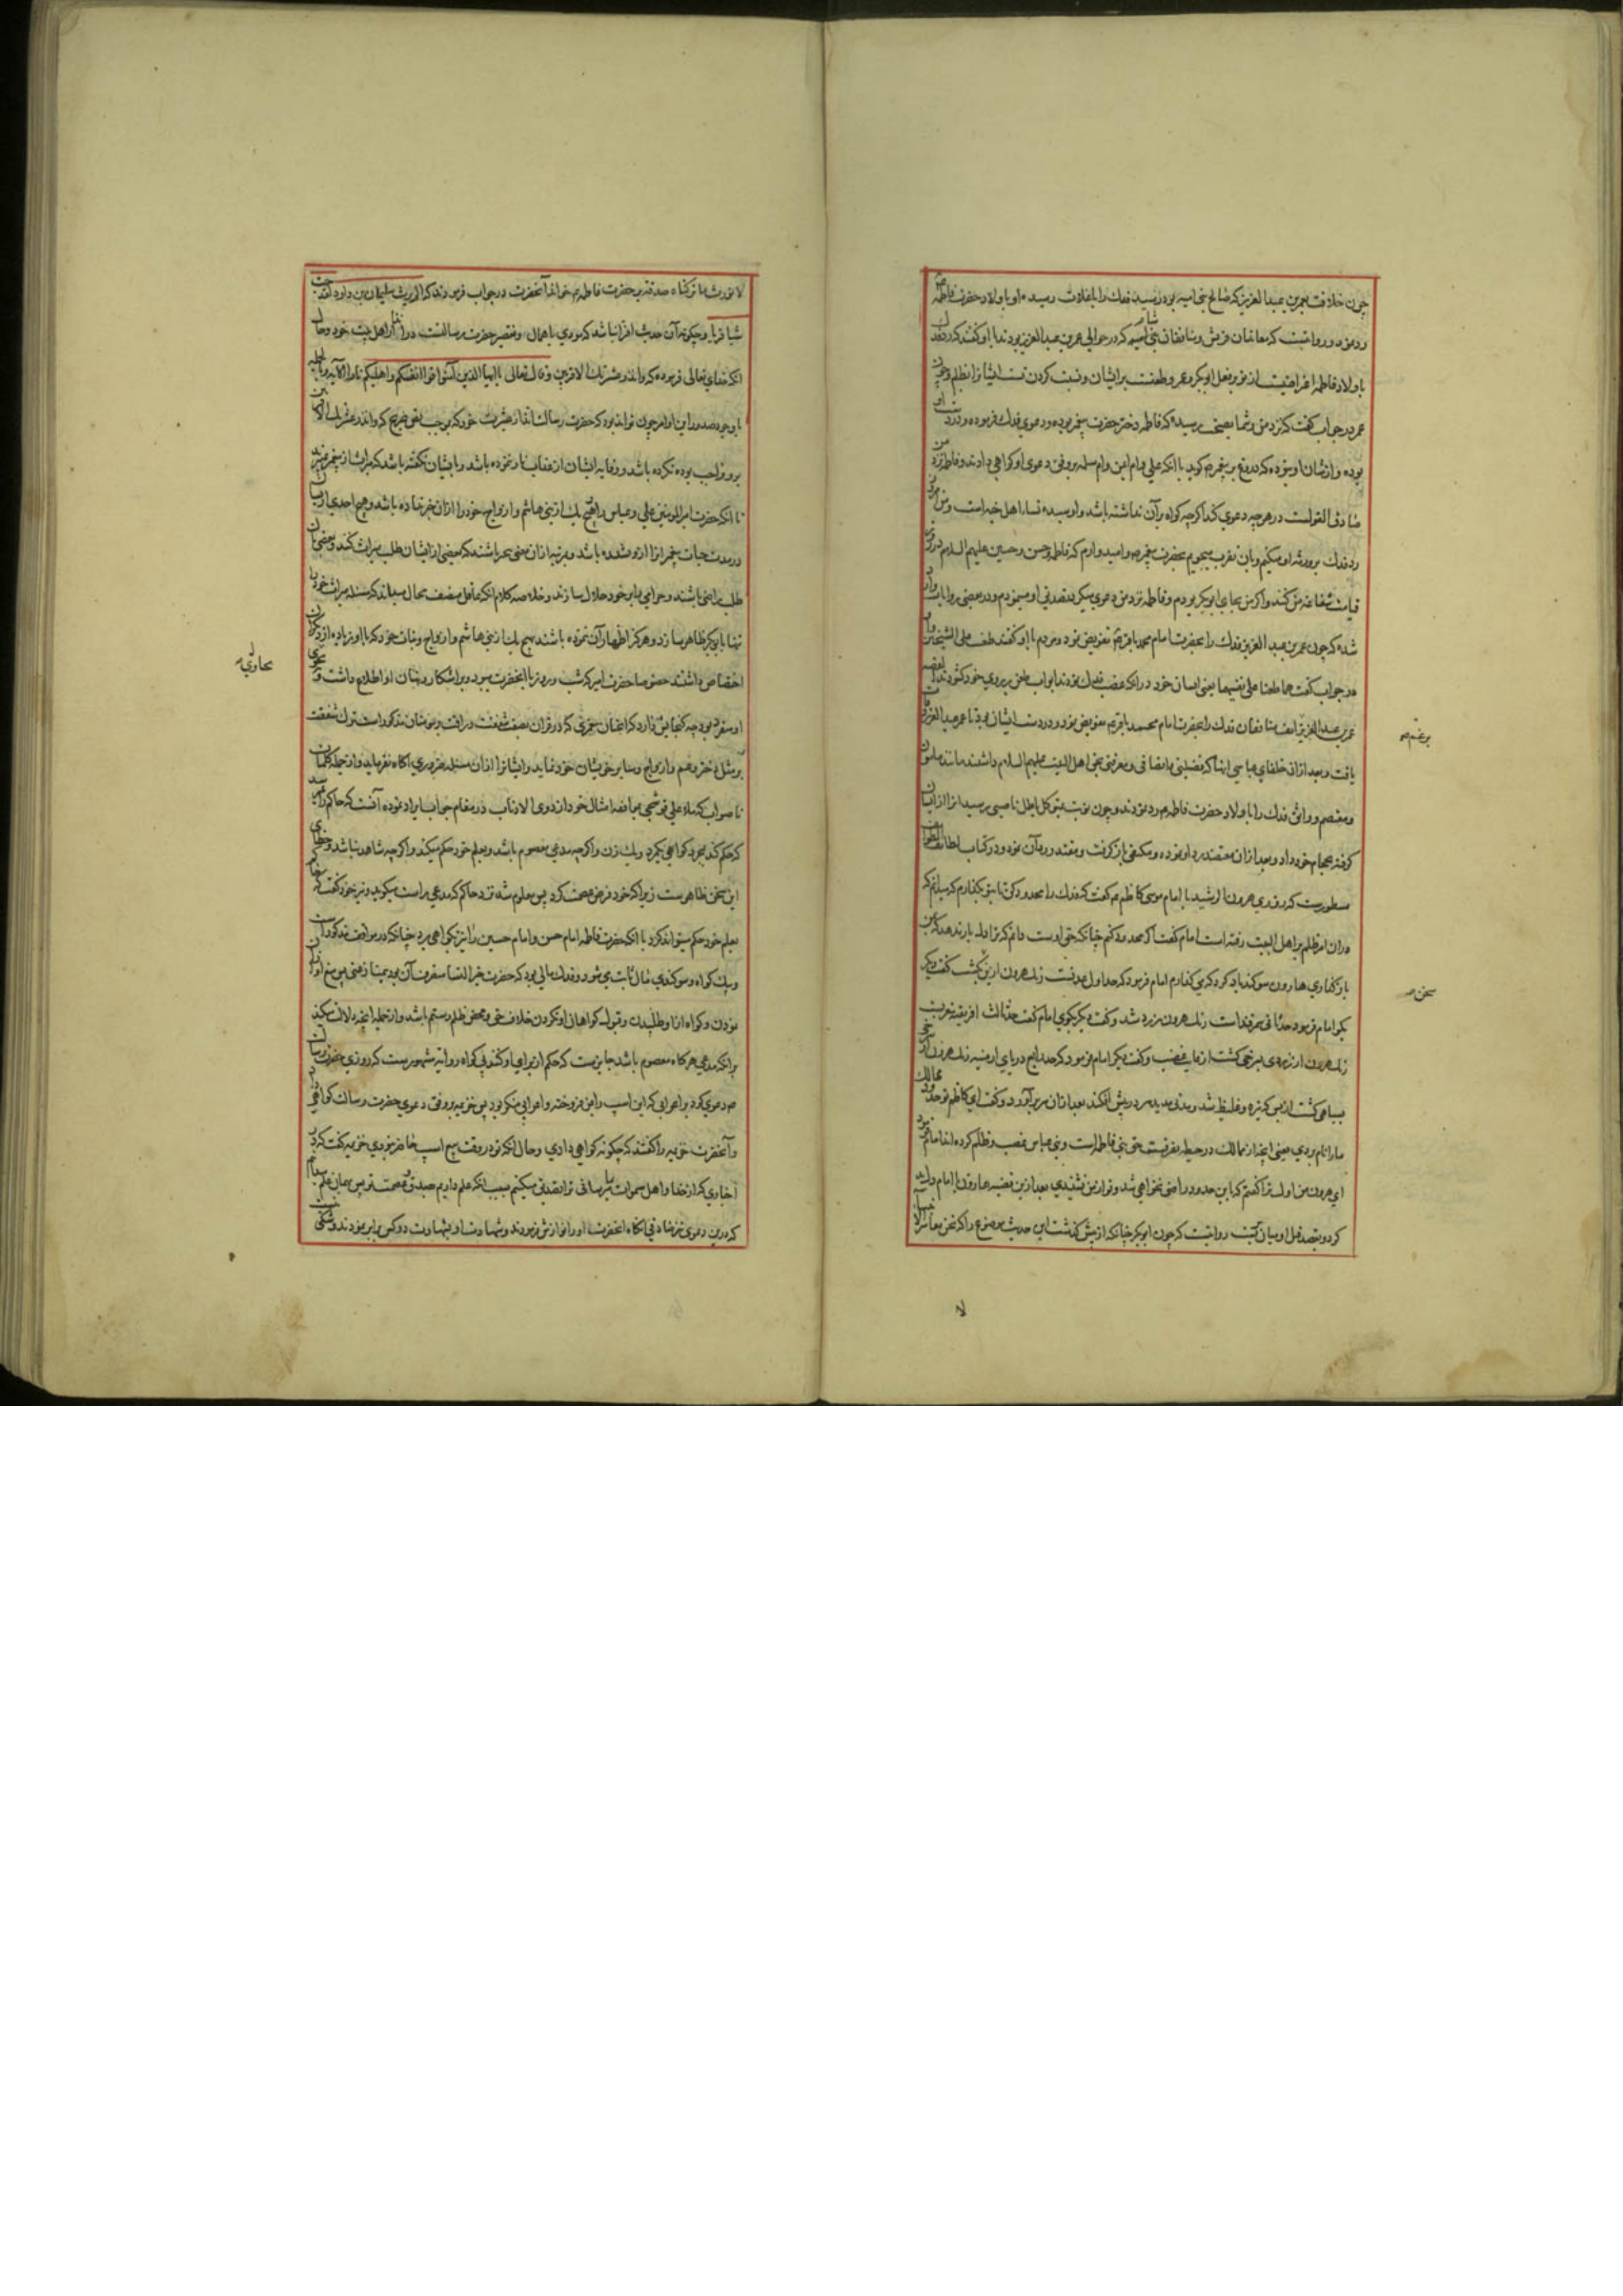 چون خلافت بعمر بن عبد العزیز که صالح بنی امیه بود رسید فدك را با غلات رسیده او باولاد حضرت فاطمه
رد نمود و روایتست که معاندان قریش و منافقان بنی امیه شام که در حوالی عمر بن عبد العزیز بودند با او گفتند که رد فدك
باولاد فاطمه اعتراضیست از تو بر فعل ابو بکر و عمر و طعنست بر ایشان و نسبت کردن تست ایشانرا بظلم و جور
عمر در جواب گفت که نزد من و شما بصحت رسیده که فاطمه دختر حضرت پیغمبر بوده و دعوی فدك فرموده و در دست او
بوده و از شان او نبوده که دروغ بر پیغمبر گوید با آنکه علی و ام ایمن و ام سلمه بر وفق دعوی او گواهی دادند و فاطمه نزد من
صادق القولست در هرچه دعوی کند اگرچه گواه بر آن نداشته باشد و او سیده نساء اهل جنه است و من امروز
رد فدك بر ورثه او میکنم و بآن تقرب میجویم بحضرت پیغمبر و امیدوارم که فاطمه و حسن و حسین علیهم السلام در روز
قیامت شفاعه من کنند و اگر من بجای ابو بکر بودم و فاطمه نزد من دعوی میکرد تصدیق او مینمودم و در بعضی روایات وارد
شده که چون عمر بن عبد العزیز فدك را بحضرت امام محمد باقر تفویض نمود مردم با او گفتند طعنت علی الشیخین او
در جواب گفت هما طعنا علی نفسهما یعنی ایشان خود در آنکه غصب فدك نمودند ابواب طعن بر روی خود گشودند القصه
عمر بن عبد العزیز منافقان فدك را بحضرت امام محمد باقر تفویض نمود و در دست ایشان بود تا عمر عبد العزیز وفات
یافت و بعد از آن خلفای عباسی آنها که فضیلتی و انصافی و معرفتی بحق اهل البیت علیهم السلام داشتند مانند مامون
و معتصم و واثق فدك را باولاد حضرت فاطمه رد نمودند و چون نوبت بمتوکل ناصبی رسید آنرا از ایشان
گرفته بحجام خود داد و بعد از آن معتضد رد او نموده و مکتفی باز گرفت و مقتدر رد آن نمود و در کتاب لطایف الطوایف
مسطورست که روزی هرون الرشید با امام موسی کاظم گفت که فدك را محدود کن تا بتو بگذارم که میدانم که
در آن امر ظلم بر اهل البیت رفته است امام گفت اگر محدود کنم چنانکه حق اوست دانم که ترا دل بار ندهد که بمن
باز گذاری هارون سوگند یاد کرد که می گذارم امام فرمود که حد اول عدنست رنك هرون ازین بگشت گفت دیگر
بگو امام فرمود حد ثانی سمرقند است رنك هرون زرد شد و گفت دیگر بگوی امام گفت حد ثالث افریقیه مغربست
رنك هرون از زردی بسرخی گشت از غایت غضب و گفت دیگر امام فرمود که حد رابع دریای ارمنیه رنك هرون از سرخی
بسیاهی گشت از بس که تیره و غلیظ شد و مدتی مدید سر در پیش افکند بعد از آن سر برآورد و گفت ای کاظم تو حدود ممالك
ما را نام بردی یعنی آنچه از ممالك در حیطه تصرف ماست حق بنی فاطمه است و بنی عباس بغصب و ظلم گرفته اند امام فرمود
ای هرون من اول ترا گفتم که باین حدود راضی نخواهی شد و تو از من نشنیدی بعد ازین قضیه هارون با امام دل بد
کرد و بقصد قتل او میان بست روایتست که چون ابو بکر چنانکه از پیش گذشت این حدیث موضوع را که نحن معاشر الانبیاء
برغم
سخن
لا نورث ما ترکناه صدقة بر حضرت فاطمه خواند آنحضرت در جواب فرمودند که اگر ورث سلیمان بن داود
شیأ فریا و چگونه آن حدیث افترا نباشد که مودی باهمال و تقصیر حضرت رسالتست در انذار اهل بیت خود و حال
آنکه خدای تعالی فرموده که وانذر عشیرتك الاقربین و قال تعالی یا ایها الذین آمنوا قوا انفسکم و اهلیکم نارا الآیه و بالجمله
با وجود صدور این اوامر چون تواند بود که حضرت رسالت انذار عشیرت خود که بموجب نص صریح که وانذر عشیرتك الاقربین
بر او واجب بوده نکرده باشد و وقایه ایشان از عذاب نار ننموده باشد و بایشان نگفته باشد که میراث از پیغمبر نمیبرند
تا آنکه حضرت امیر المومنین علی و عباس و هیچ یك از بنی هاشم و ازواج خود را از آن خبر نداده باشد و هیچ احدی از ایشان
در مدت حیات پیغمبر آنرا ازو نشنیده باشد و بمرتبه از آن معنی بیخبر باشند که بعضی از ایشان طلب میراث کنند و بعضی بآن
طلب راضی باشند و حرامی را بر خود حلال سازند و خلاصه کلام آنکه عاقل منصف محال میداند که مسئله میراث خود را
تنها بابو بکر ظاهر سازد و هرگز اظهار آن ننموده باشند بهیچ یك از بنی هاشم و ازواج و بنات خود که با او زیاده از دیگران
اختصاص داشتند خصوصا حضرت امیر که شب و روز با آنحضرت میبود و بر آشکار و پنهان او اطلاع داشت و
بر مثل دختر و عم و ازواج و سایر خویشان خود نماید و ایشانرا از آن مسئله ضروری آگاه نفرماید و از جمله کلمات
ناصواب که ملا علی قوشچی بمتابعه امثال خود از ذوی الاذناب در مقام جواب ایراد نموده آنست که حاکم را نمیرسد
که حکم کند بمجرد گواهی یکمرد و یك زن و اگرچه مدعی معصوم باشد و بعلم خود حکم میکند و اگرچه شاهد نباشد و خطای
این سخن ظاهرست زیرا که خود فرض عصمت کرد پس معلوم شد نزد حاکم که مدعی راست میگوید و نیز خود گفت که حاکم
بعلم خود حکم میتواند کرد با آنکه حضرت فاطمه امام حسن و امام حسین را نیز بگواهی برد چنانکه در مواقف مذکور است
و بیك گواه و سوگندی مال ثابت می شود و فدك مالی بود که حضرت خیر النسا متصرف آن بود
نمودن و گواه از او طلبیدن و قبول گواهان او نکردن خلاف حق و محض ظلم و ستم باشد و از جمله آنچه دلالت میکند
بر آنکه مدعی هرگاه معصوم باشد جایزست که حکم از برای او کند بی گواه روایة مشهورست که روزی حضرت رسالت
دعوی کرد بر اعرابی که این اسب را بمن فروخته و اعرابی منکر بود پس خزیمه بر وفق دعوی حضرت رسالت گواهی
و آنحضرت خزیمه را گفتند که چگونه گواهی دادی و حال آنکه تو در وقت بیع اسب حاضر نبودی خزیمه گفت که
اخباری که از خدا و اهل سموات بما میرسانی ترا تصدیق میکنیم بسبب آنکه علم داریم بصدق و عصمت تو پس بهمان علم میدانم
که درین دعوی نیز صادقی آنگاه آنحضرت او را نوازش فرمودند و شهادت او بشهادت دو کس برابر نمودند و شکی نیست